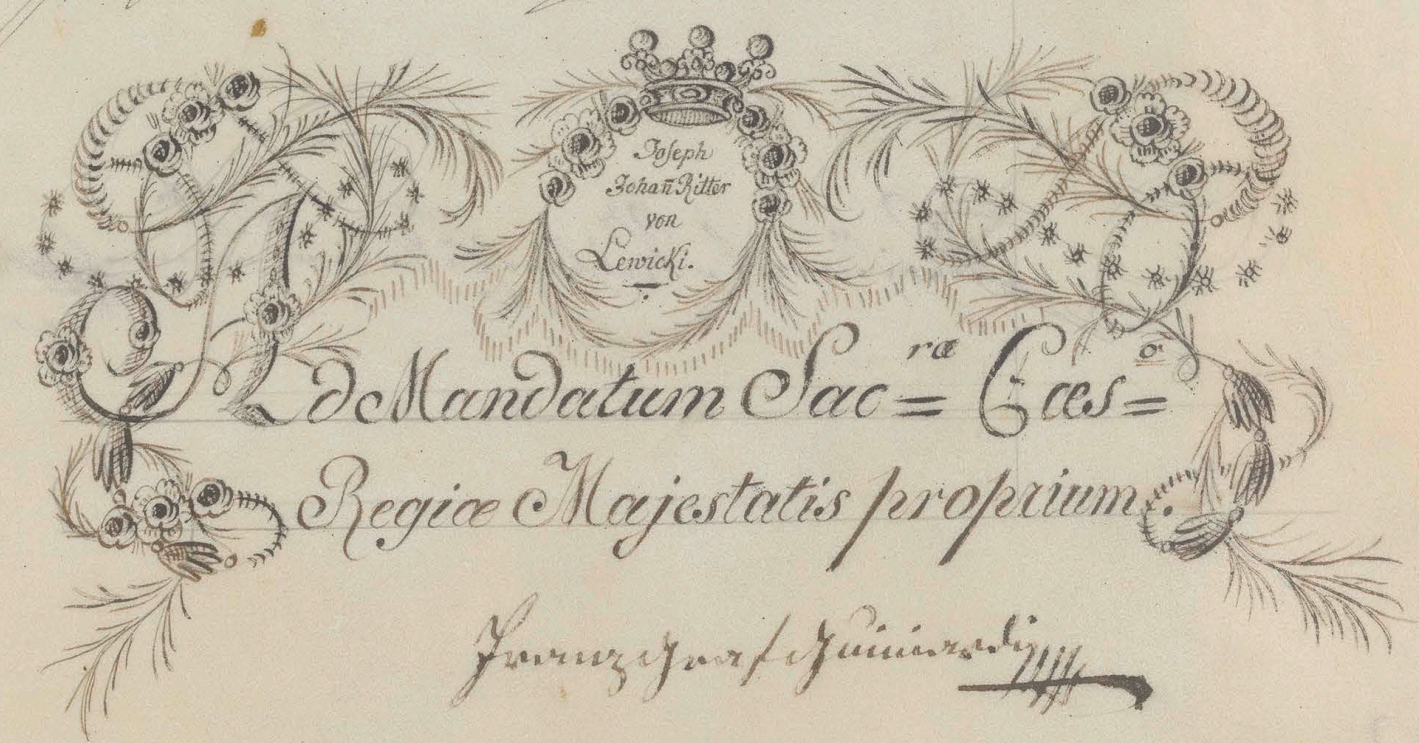 Joseph
Johañ Ritter
von
Lewicki.
Ad Mandatum Sac=ræ Cæs=o
Regiæ Majestatis proprium.
Franz Graf Guiciardi